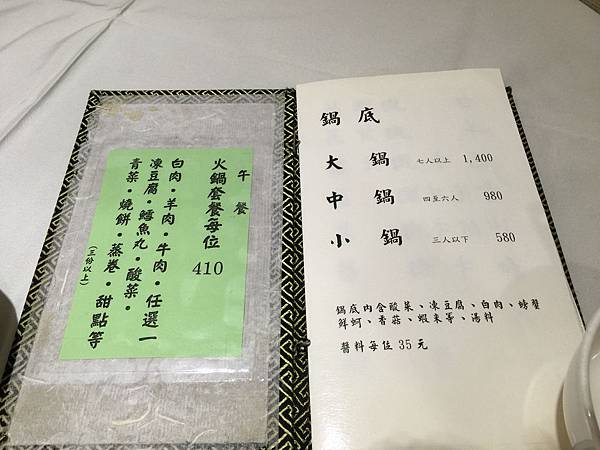 午餐
火鍋套餐每位 410
白肉·羊肉·牛肉·任選一
凍豆腐·鱈魚丸·酸菜·
青菜·燒餅·蒸卷·甜點等
(三份以上)
鍋底
大鍋 七人以上 1,400
中鍋 四至六人 980
小鍋 三人以下 580
鍋底內含酸菜、凍豆腐、白肉、螃蟹
鮮蚵、香菇、蝦米等、湯料
醬料每位35元